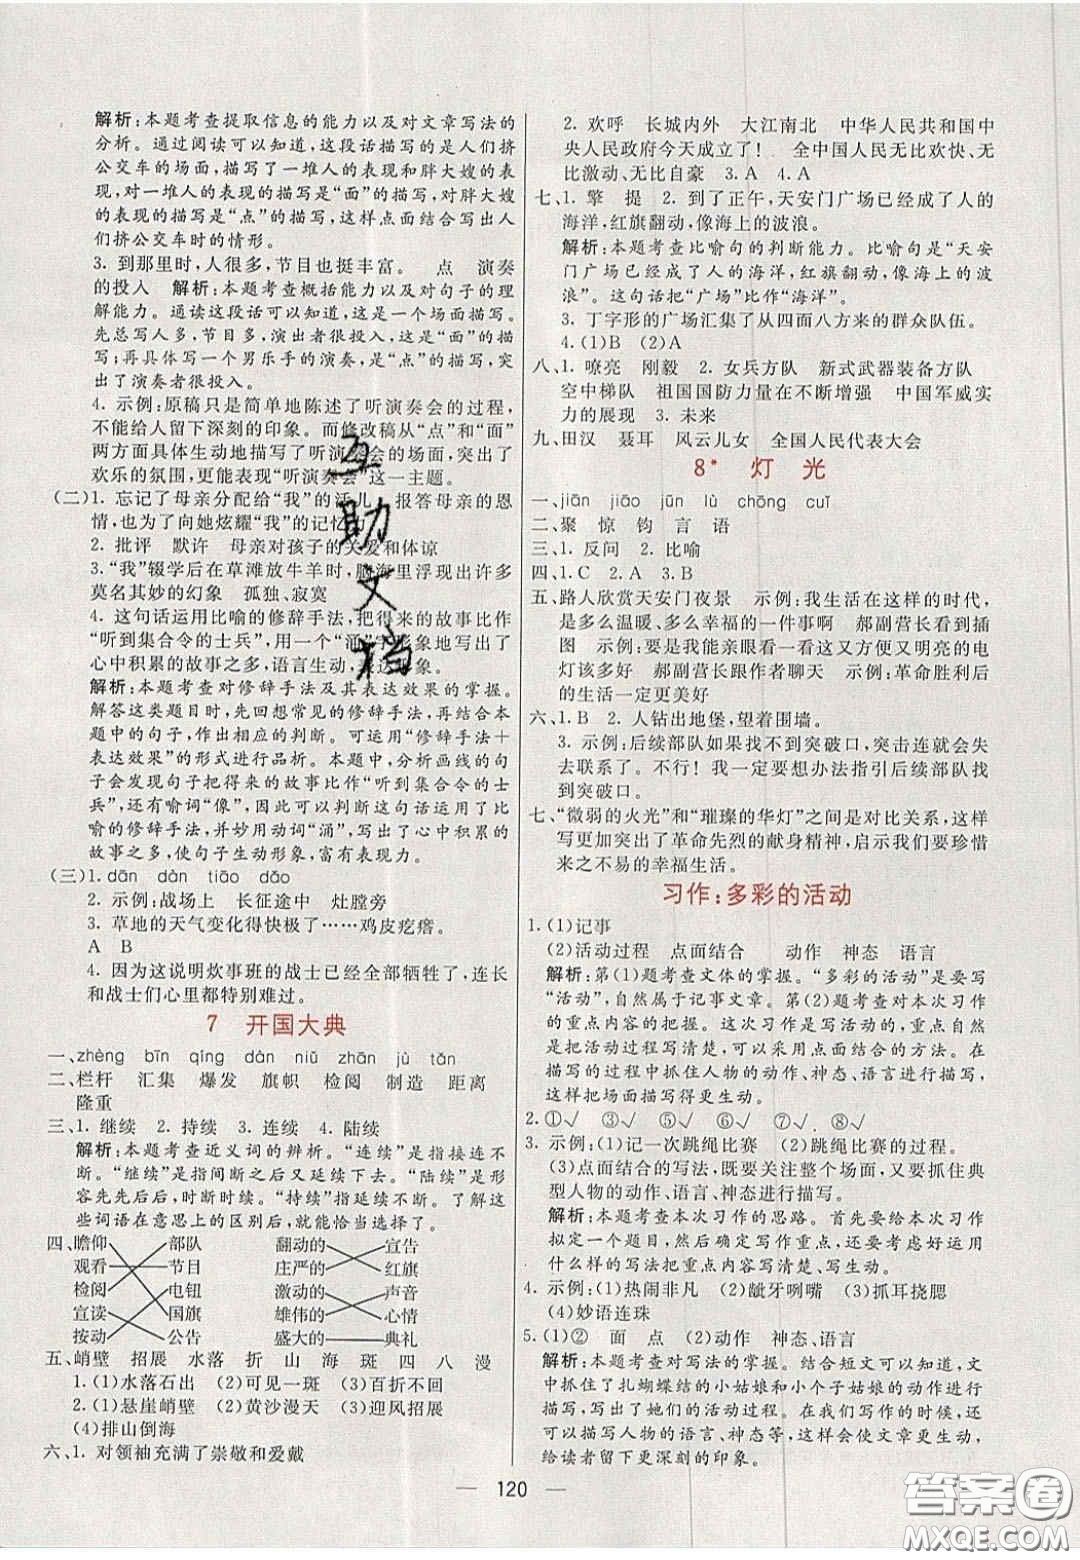 解析:本题考查提取信息的能力以及对文章写法的
分析。通过阅读可以知道,这段话描写的是人们挤
公交车的场面,描写了一堆人的表现和胖大嫂的表
现,对一堆人的表现的描写是“面”的描写,对胖大嫂
的表现的描写是“点”的描写,这样点面结合写出人
们挤公交车时的情形。
3. 到那里时,人很多,节目也挺丰富。 点 演奏
的投入 解析:本题考查概括能力以及对句子的理
解能力。通读这段话可以知道,这是一个场面描写。
先总写人多,节目多,演出者很投入,是“面”的描
写;再具体写一个男乐手的演奏,是“点”的描写,突
出了演奏者很投入。
4. 示例:原稿只是简单地陈述了听演奏会的过程,
不能给人留下深刻的印象。而修改稿从“点”和“面”
两方面生动地描写了听演奏会的场面,突出了
欢乐的氛围,更能表现“听演奏会”这一主题。
(二)1. 忘记了母亲分配给“我”的活儿 报答母亲的恩
情,也为了向她炫耀“我”的记忆力
2. 批评 默许 母亲对孩子的关爱和体谅
3.“我”辍学后在草滩放牛羊时,脑海里浮现出许多
莫名其妙的幻象 孤独、寂寞
4. 这句话运用比喻的修辞手法,把得来的故事比作
“听到集合令的士兵”,用一个“涌”字形象地写出了
心中积累的故事之多,语言生动,表达形象。
解析:本题考查对修辞手法及其表达效果的掌握。
解答这类题目时,先回想常见的修辞手法,再结合本
题中的句子,作出相应的判断。可运用“修辞手法+
表达效果”的形式进行品析。本题中,分析画线的句
子会发现句子把得来的故事比作“听到集合令的士
兵”,还有喻词“像”,因此可以判断这句话运用了比
喻的修辞手法,并妙用动词“涌”,写出了心中积累的
故事之多,使句子生动形象,富有表现力。
(三)1. dān dàn tiāo dǎo
2. 示例:战场上 长征途中 灶膛旁
3. 草地的天气变化得快极了……鸡皮疙瘩。
A B
4. 因为这说明炊事班的战士已经全部牺牲了,连长
和战士们心里都特别难过。
7 开国大典
一、zhèng bīn qíng dàn niǔ zhān jù tǎn
二、栏杆 汇集 爆发 旗帜 检阅 制造 距离
隆重
三、1. 继续 2. 持续 3. 连续 4. 陆续
解析:本题考查近义词的辨析。“连续”是指接连不
断。“继续”是指间断之后又延续下去。“陆续”是形
容先先后后,时断时续。“持续”指延续不断。了解这
些词语在意思上的区别后,就能恰当选择了。
四、瞻仰 部队 翻动的 宣告
观看 节目 庄严的 红旗
检阅 电钮 激动的 声音
宣读 国旗 雄伟的 心情
按动 公告 盛大的 典礼
五、峭壁 招展 水落 折 山 海 斑 四 八 漫
1.(1)水落石出 (2)可见一斑 (3)百折不回
2.(1)悬崖峭壁 (2)黄沙漫天 (3)迎风招展
(4)排山倒海
六、1. 对领袖充满了崇敬和爱戴
2. 欢呼 长城内外 大江南北 中华人民共和国中
央人民政府今天成立了! 全中国人民无比欢快、无
比激动、无比自豪 3. A 4. A
七、1. 擎 提 2. 到了正午,天安门广场已经成了人的
海洋,红旗翻动,像海上的波浪。
解析:本题考查比喻句的判断能力。比喻句是“天安
门广场已经成了人的海洋,红旗翻动,像海上的波
浪”。这句话把“广场”比作“海洋”。
3. 丁字形的广场汇集了从四面八方来的群众队伍。
4.(1)B (2)A
八、1. 嘹亮 刚毅 2. 女兵方队 新式武器装备方队
空中梯队 祖国国防力量在不断增强 中国军威实
力的展现 3. 未来
九、田汉 聂耳 风云儿女 全国人民代表大会
8* 灯 光
一、jiān jiāo jūn lù chōng cuǐ
二、聚 惊 钩 言 语
三、1. 反问 2. 比喻
四、1. C 2. A 3. B
五、路人欣赏天安门夜景 示例:我生活在这样的时代,
是多么温暖、多么幸福的一件事啊 郝副营长看到插
图 示例:要是我能亲眼看一看这又方便又明亮的电
灯该多好 郝副营长跟作者聊天 示例:革命胜利后
的生活一定更美好
六、1. B 2. 人钻出地堡,望着围墙。
3. 示例:后续部队如果找不到突破口,突击连就会失
去联系了。不行!我一定要想办法指引后续部队找
到突破口。
七、“微弱的火光”和“璀璨的华灯”之间是对比关系,这样
写更加突出了革命先烈的献身精神,启示我们要珍惜
来之不易的幸福生活。
习作:多彩的活动
1.(1)记事
(2)活动过程 点面结合 动作 神态 语言
解析:第(1)题考查文体的掌握。“多彩的活动”是要写
“活动”,自然属于记事文章。第(2)题考查对本次习作
的重点内容的把握。这次习作是写活动的,重点自然
是把活动过程写清楚,可以采用点面结合的方法。在
描写的过程中抓住人物的动作、神态、语言进行描写,
这样把场面描写得更生动。
2. ①√ ③√ ⑤√ ⑦√ ⑧√
3. 示例:(1)记一次跳绳比赛 (2)跳绳比赛的过程。
(3)点面结合的写法,既要关注整个场面,又要抓住典
型人物的动作、语言、神态进行描写。
解析:本题考查本次习作的思路。首先要给本次习作
拟定一个题目,然后确定写作重点,还要考虑好运用
什么样的写法把重点内容写清楚、写生动。
4. 示例:(1)热闹非凡 (2)龇牙咧嘴 (3)抓耳挠腮
(4)妙语连珠
5.(1)② 面 点 (2)动作 神态、语言
解析:本题考查对写法的掌握。结合短文可以知道,文
中抓住了扎蝴蝶结的小姑娘和小个子姑娘的动作进行
描写,给我们留下了深刻的印象。在我们写作的时候,
还可以描写人物的语言、神态等,这样会使文章更生动,
给读者留下更深刻的印象。
120
互助文档
答案卷
MXQE.COM